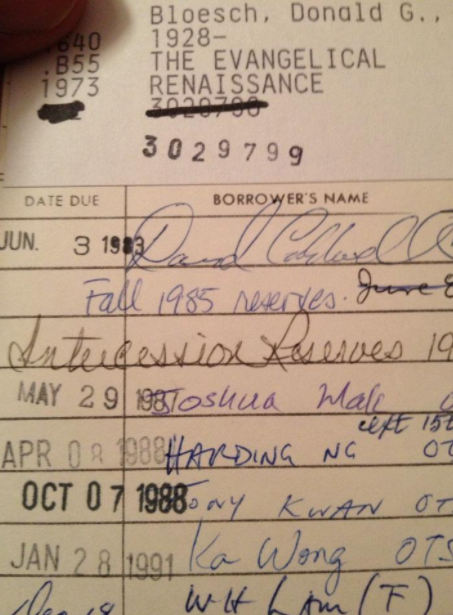 Bloesch, Donald G.,
640 1928-
.B55 THE EVANGELICAL
1973 RENAISSANCE
3029799
DATE DUE BORROWER'S NAME
JUN. 3 1983 David
Fall 1985 reserves. June 8
Intercession Reserves 19
MAY 29 1987 Joshua
APR 08 1988 HARDING NG OT
OCT 07 1988 TONY KWAN OT
JAN 28 1991 Ka Wong OTS
WH LAM (F)